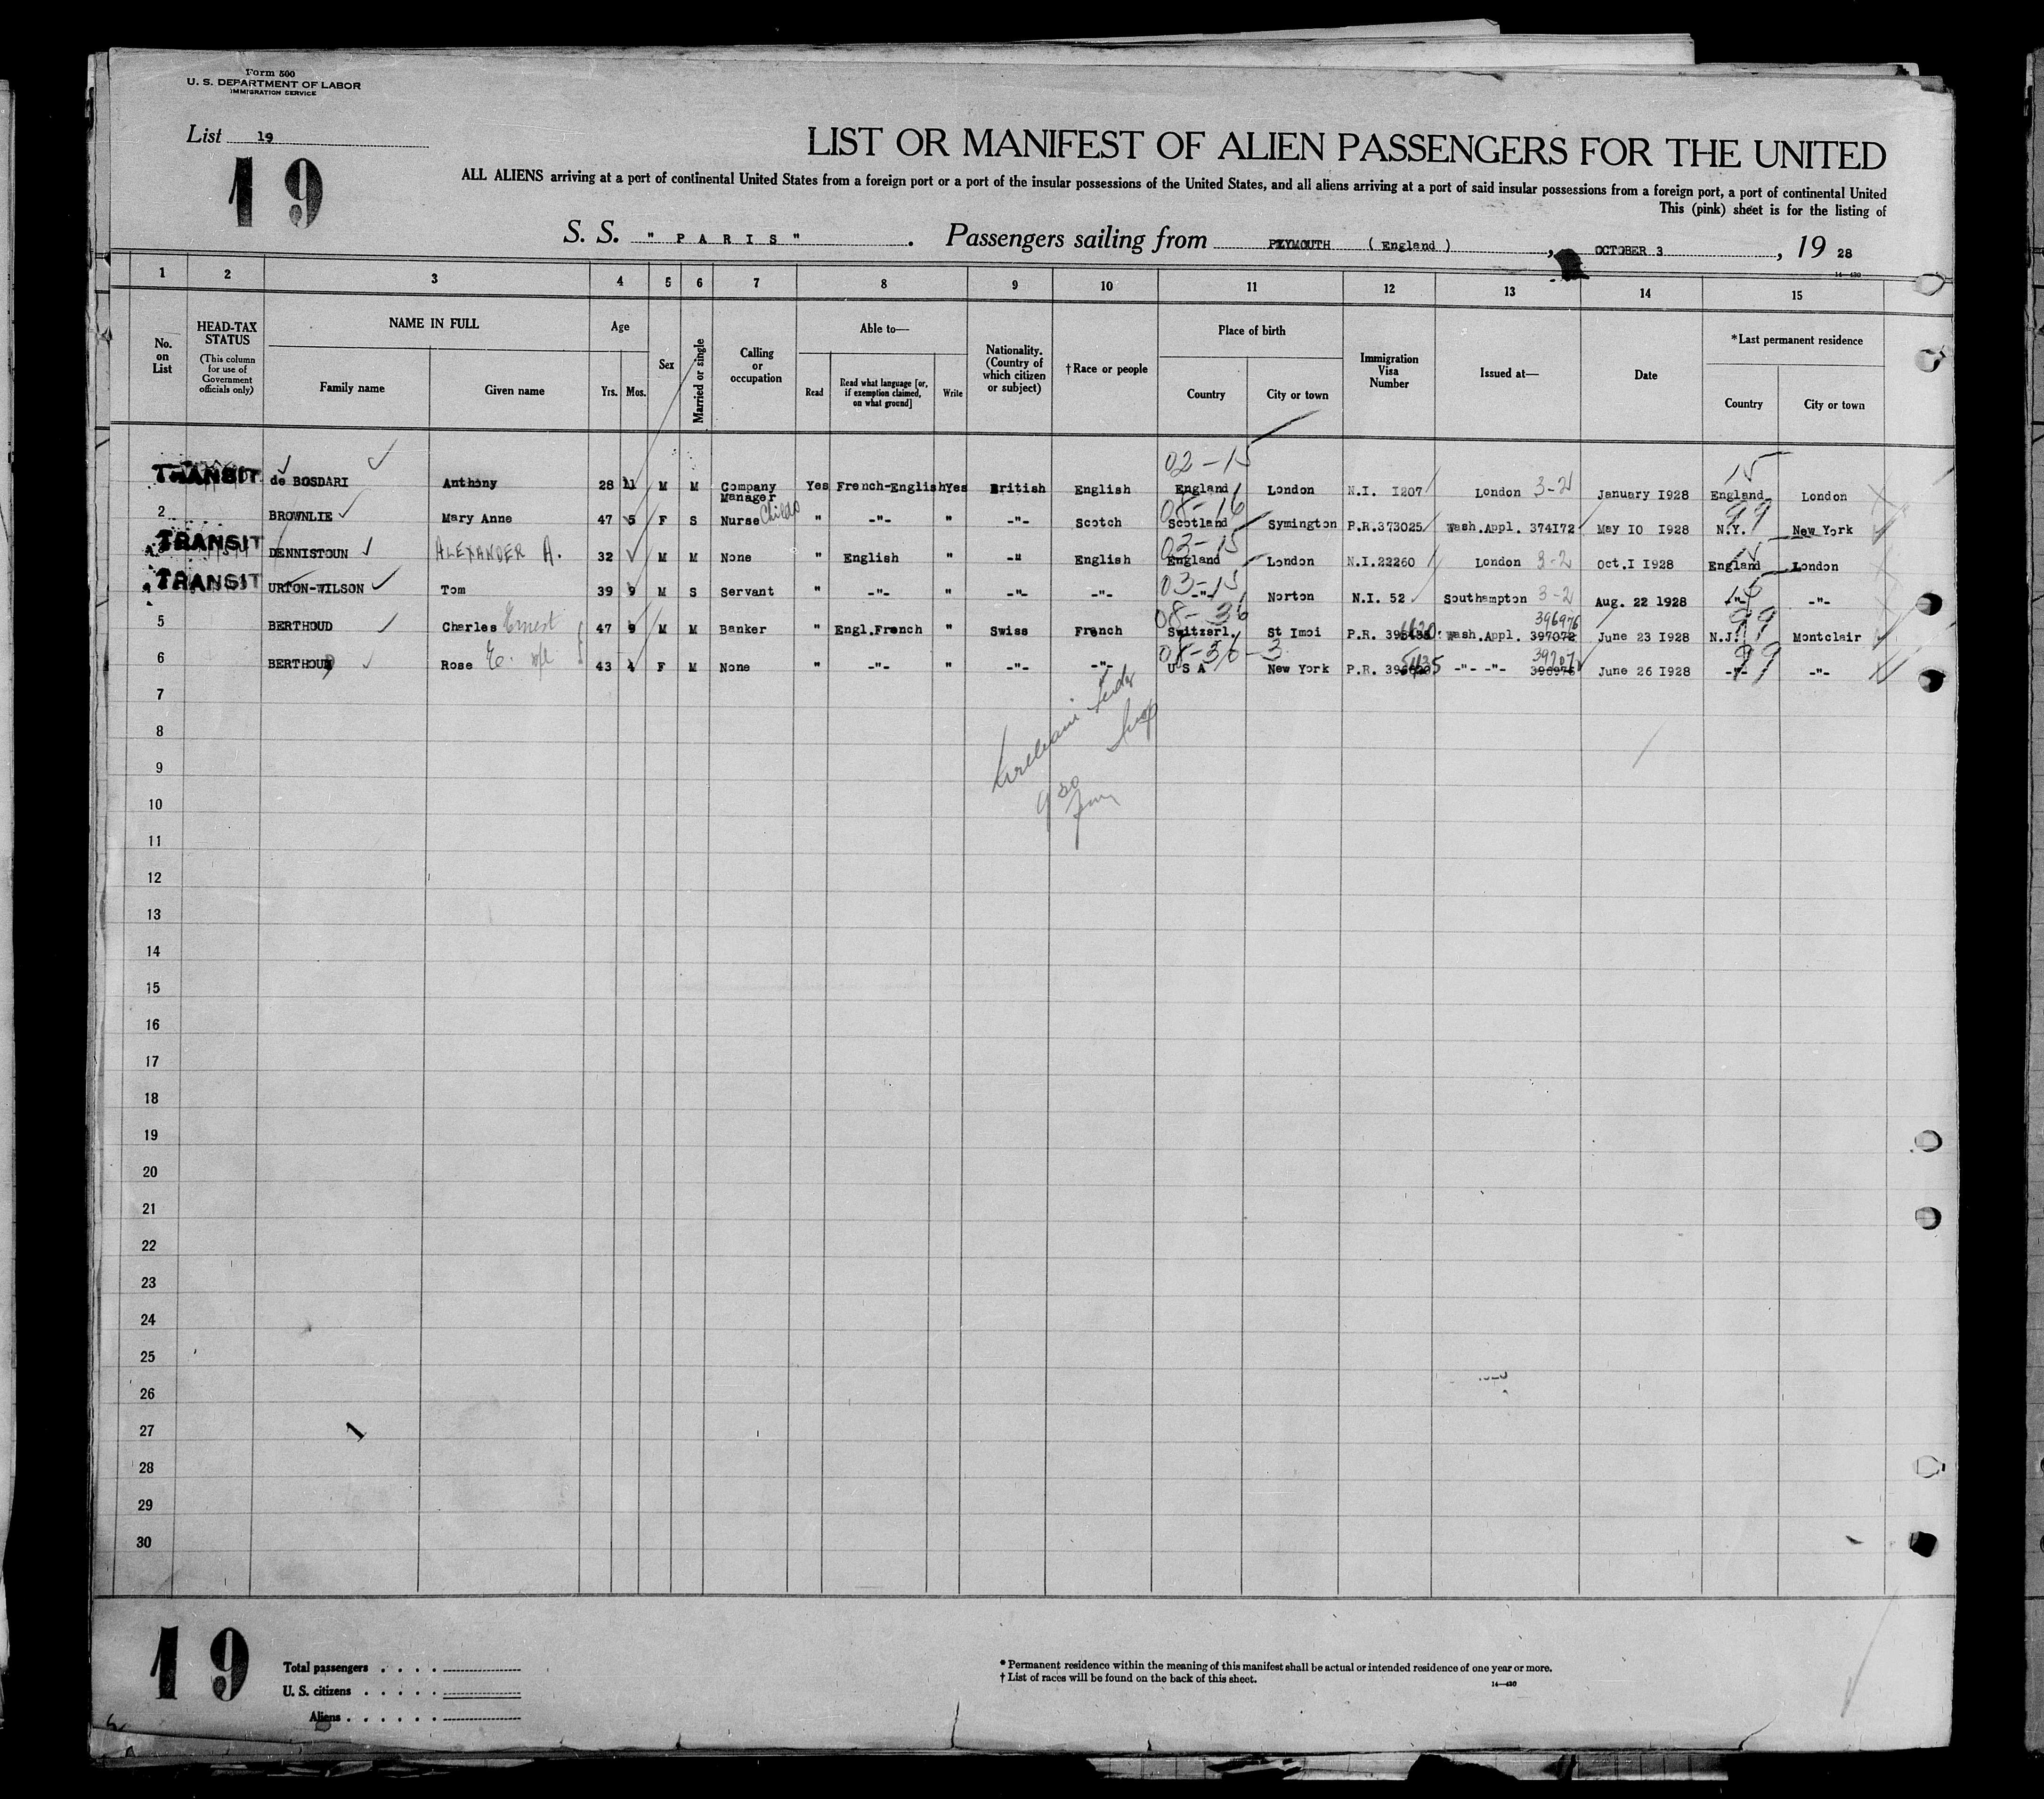 Form 500
U. S. DEPARTMENT OF LABOR
IMMIGRATION SERVICE
List 19
19
LIST OR MANIFEST OF ALIEN PASSENGERS FOR THE UNITED
ALL ALIENS arriving at a port of continental United States from a foreign port or a port of the insular possessions of the United States, and all aliens arriving at a port of said insular possessions from a foreign port, a port of continental United
This (pink) sheet is for the listing of
S. S. " P A R I S " . Passengers sailing from PLYMOUTH ( England ) , OCTOBER 3 , 19 28
14—430
1 2 3 4 5 6 7 8 9 10 11 12 13 14 15
No. on List
HEAD-TAX STATUS
(This column for use of Government officials only)
NAME IN FULL
Family name
Given name
Age
Yrs. Mos.
Sex
Married or single
Calling or occupation
Able to—
Read
Read what language [or, if exemption claimed, on what ground]
Write
Nationality. (Country of which citizen or subject)
†Race or people
Place of birth
Country
City or town
Immigration Visa Number
Issued at—
Date
*Last permanent residence
Country
City or town
02-15 15
TRANSIT de BOSDARI Anthony 28 11 M M Company Manager Yes French-English Yes British English England London N.I. 1207 London 3-2 January 1928 England London
08-16 99
2 BROWNLIE Mary Anne 47 5 F S Nurse Childs " -"- " -"- Scotch Scotland Symington P.R.373025 Wash.Appl. 374172 May 10 1928 N.Y. New York
03-15 15
TRANSIT DENNISTOUN ALEXANDER A. 32 M M None " English " -" English England London N.I.22260 London 3-2 Oct.1 1928 England London
03-15 15
TRANSIT URTON-WILSON Tom 39 9 M S Servant " -"- " -"- -"- -"- Norton N.I. 52 Southampton 3-2 Aug. 22 1928 -"- -"-
08-36 396976 99
5 BERTHOUD Charles Ernest 47 9 M M Banker " Engl.French " Swiss French Switzerl. St Imoi P.R. Wash.Appl. 397072 June 23 1928 N.J. Montclair
08-36-3 99
6 BERTHOUD Rose E. wf 43 4 F M None " -"- " -"- -"- U S A New York P.R. -"- -"- 396976 June 26 1928 -"- -"-
7
8
9
10
11
12
13
14
15
16
17
18
19
20
21
22
23
24
25
26
27
28
29
30
19
Total passengers . . . .
U. S. citizens . . . . .
Aliens . . . . . .
* Permanent residence within the meaning of this manifest shall be actual or intended residence of one year or more.
† List of races will be found on the back of this sheet.
14—430